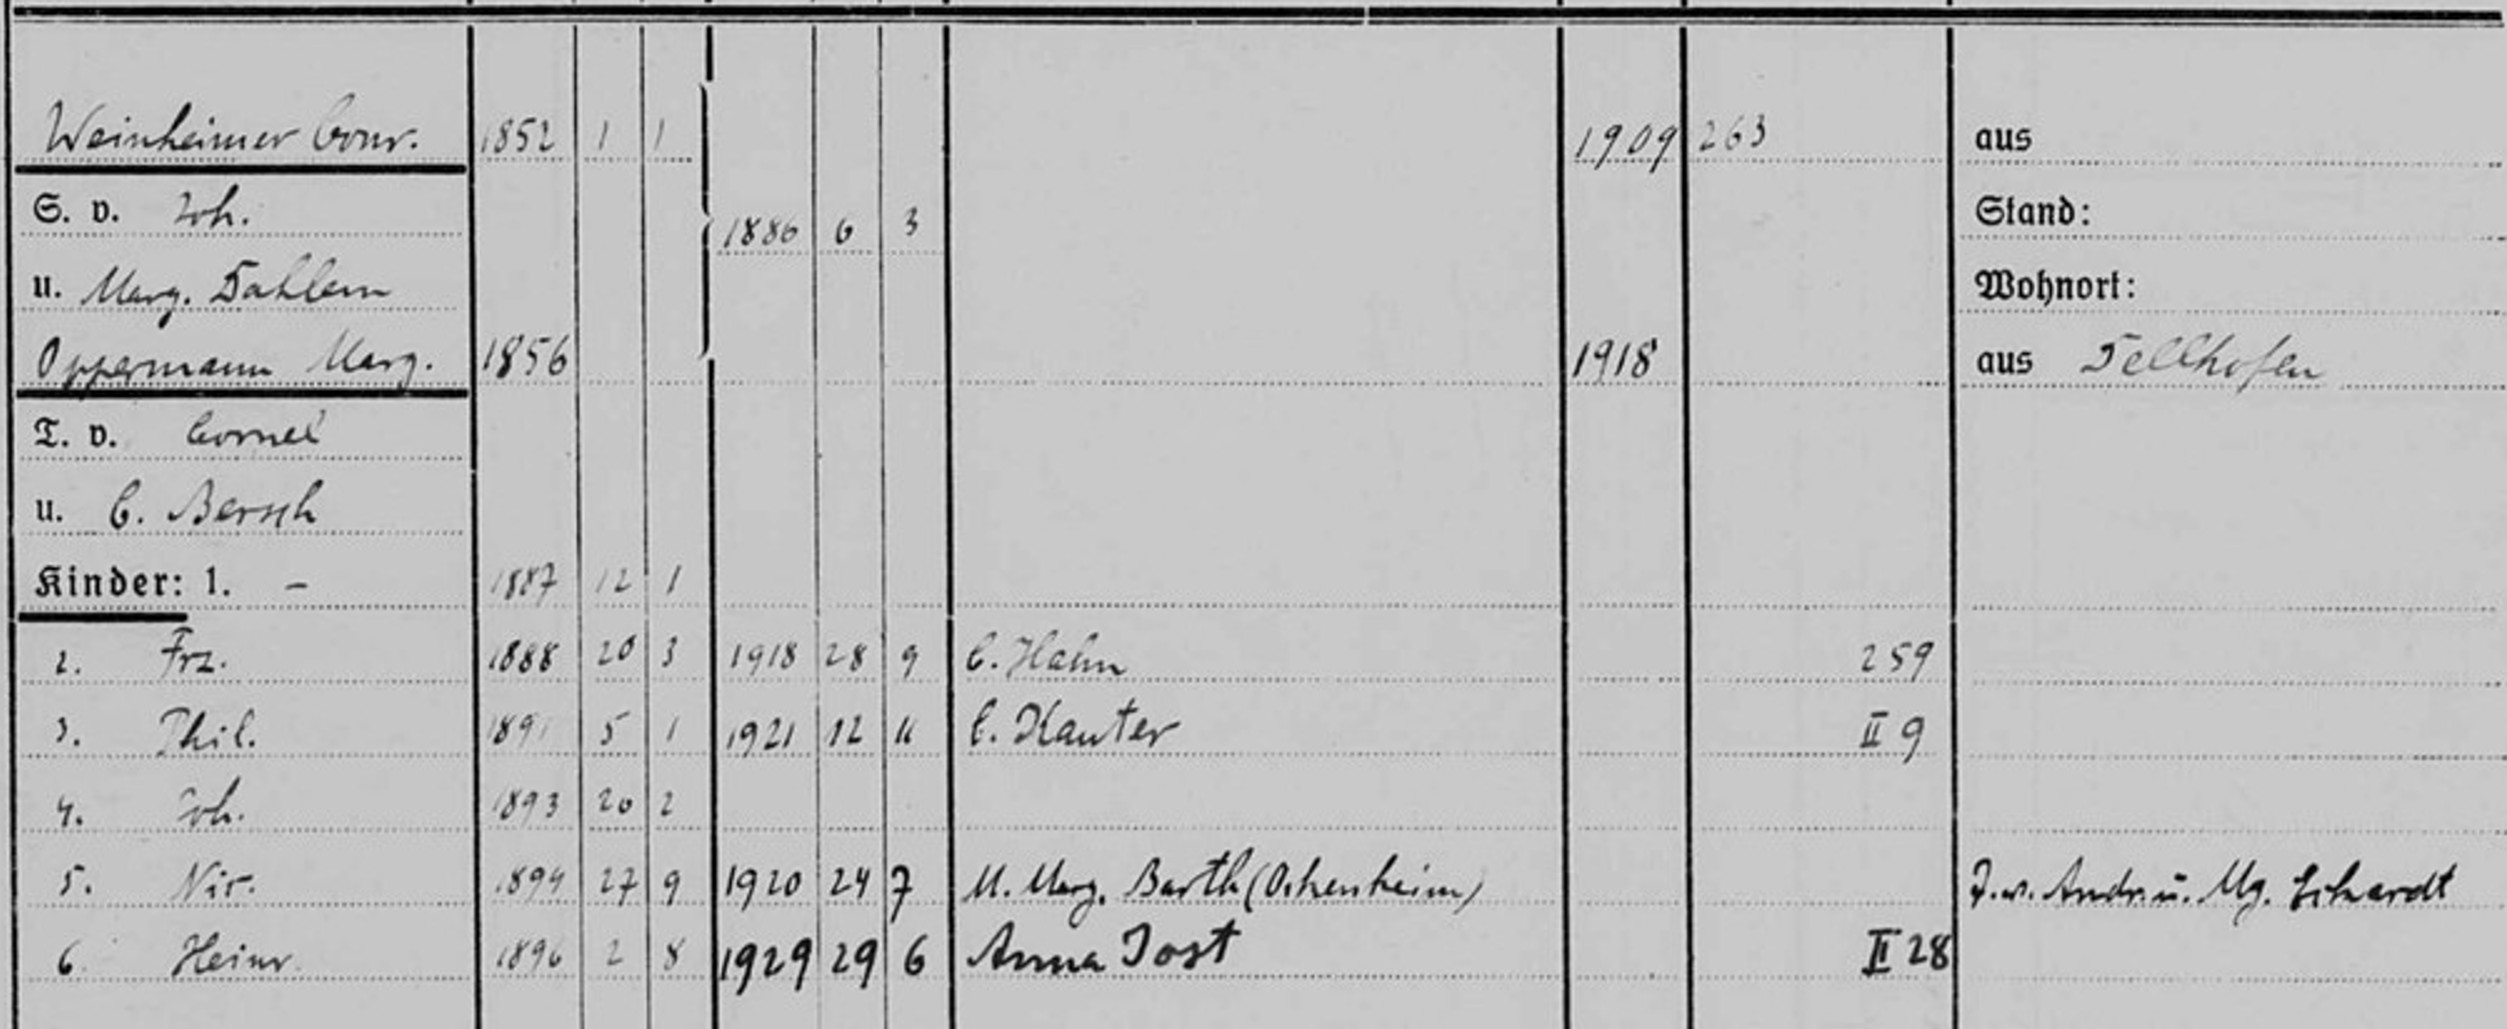 Weinheimer Conr. 1852 1 1 1909 263 aus
S. v. Joh. 1886 6 3 Stand:
u. Marg. Dahlem Wohnort:
Oppermann Marg. 1856 1918 aus Dellhofen
T. v. Cornel
u. C. Bersch
Kinder: 1. – 1887 12 1
2. Frz. 1888 20 3 1918 28 9 C. Hahn 259
3. Phil. 1891 5 1 1921 12 11 C. Kauter II 9
4. Joh. 1893 20 2
5. Nic. 1894 27 9 1920 24 7 M. Marg. Barth (Ockenheim) T. v. Andr. u. Mg. Erhardt
6. Heinr. 1896 2 8 1929 29 6 Anna Jost II 28